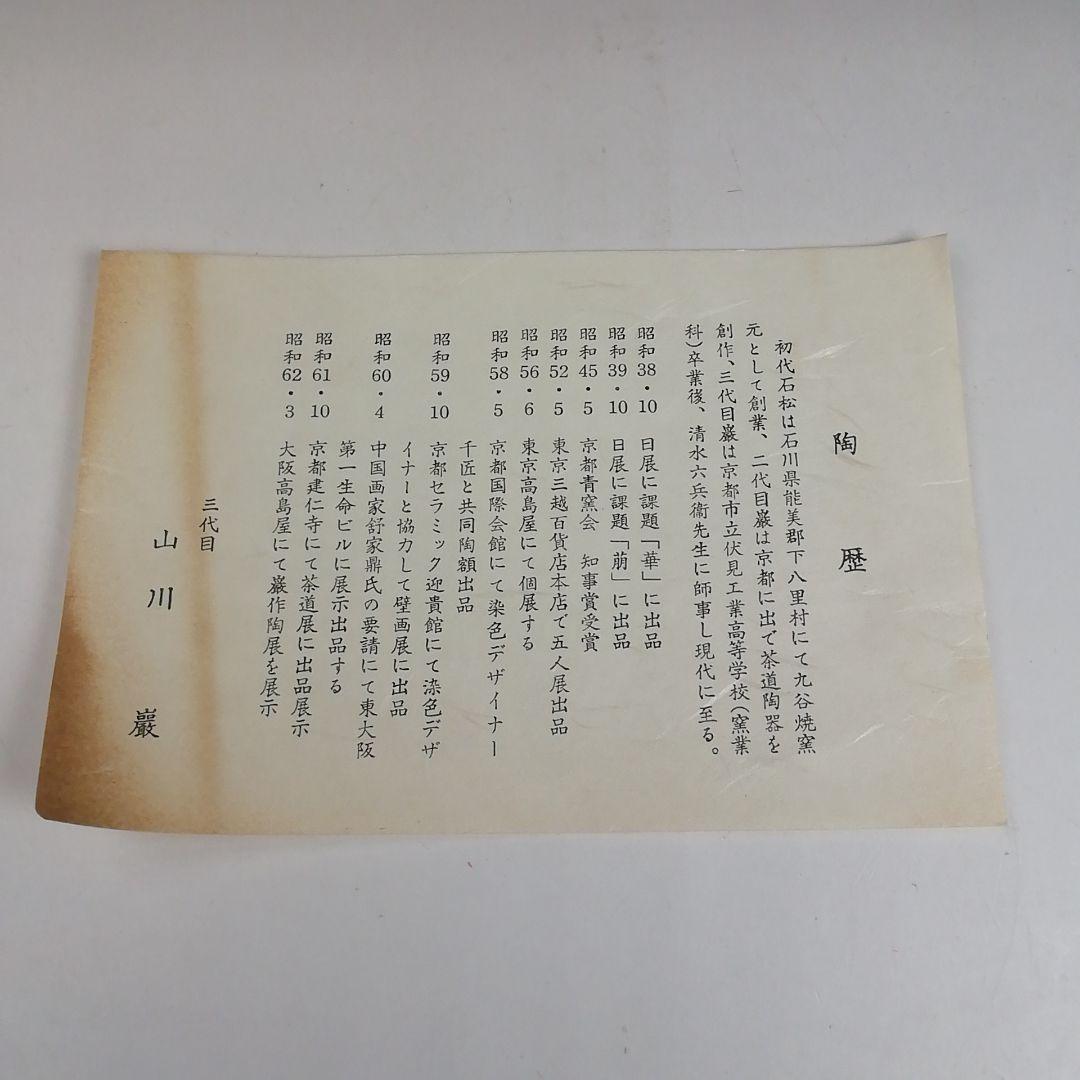 陶歴
初代石松は石川県能美郡下八里村にて九谷焼窯
元として創業、二代目巖は京都に出で茶道陶器を
創作、三代目巖は京都市立伏見工業高等学校(窯業
科)卒業後、清水六兵衞先生に師事し現代に至る。
昭和38・10 日展に課題「華」に出品
昭和39・10 日展に課題「萠」に出品
昭和45・5 京都青窯会 知事賞受賞
昭和52・5 東京三越百貨店本店で五人展出品
昭和56・6 東京高島屋にて個展する
昭和58・5 京都国際会館にて染色デザイナー
千匠と共同陶額出品
昭和59・10 京都セラミック迎賓館にて染色デザ
イナーと協力して壁画展に出品
昭和60・4 中国画家舒家鼎氏の要請にて東大阪
第一生命ビルに展示出品する
昭和61・10 京都建仁寺にて茶道展に出品展示
昭和62・3 大阪高島屋にて巖作陶展を展示
三代目
山川 巖